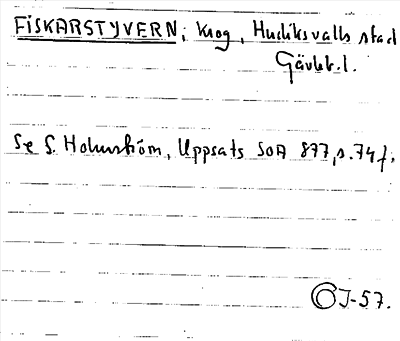 FISKARSTYVERN; Krog, Hudiksvalls stad
Gävleb. l.
Se S. Holmström, Uppsats SOA 877, s. 74 f.
CJ-57.